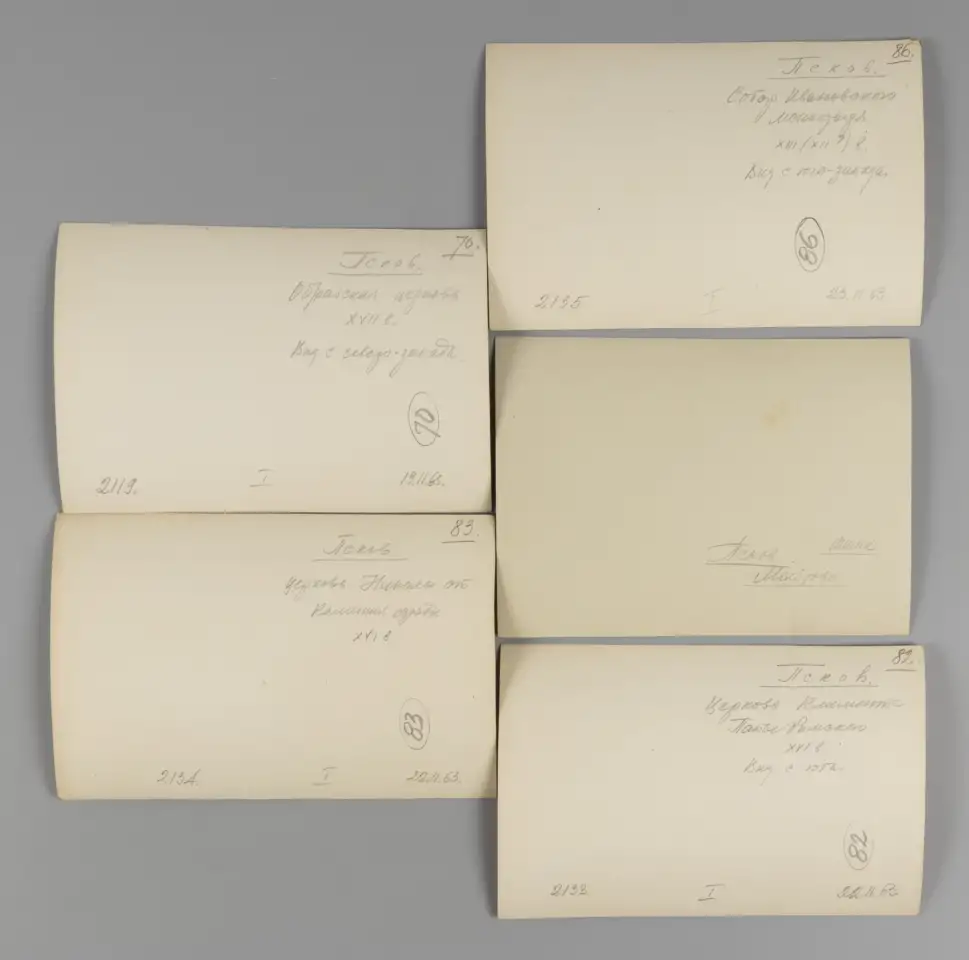 86.
Псков.
Собор Ивановского
монастыря
XIII (XII ?) в.
Вид с юго-запада.
86
2135
I
23.11.63
70.
Псков.
церковь
XVII в.
Вид с северо-запада
70
2119.
I
19.11.63.
83.
Псков
Церковь Николы от
Каменной ограды
XVI в
83
2134.
I
22.11.63.
Псков
82.
Псков.
Церковь Климента
Папы Римского
XVI в
Вид с юга.
82
2132
I
22.11.63